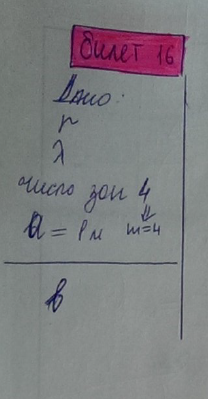 билет 16
Дано:
r
λ
число зон 4
a = 1 м m=4
b